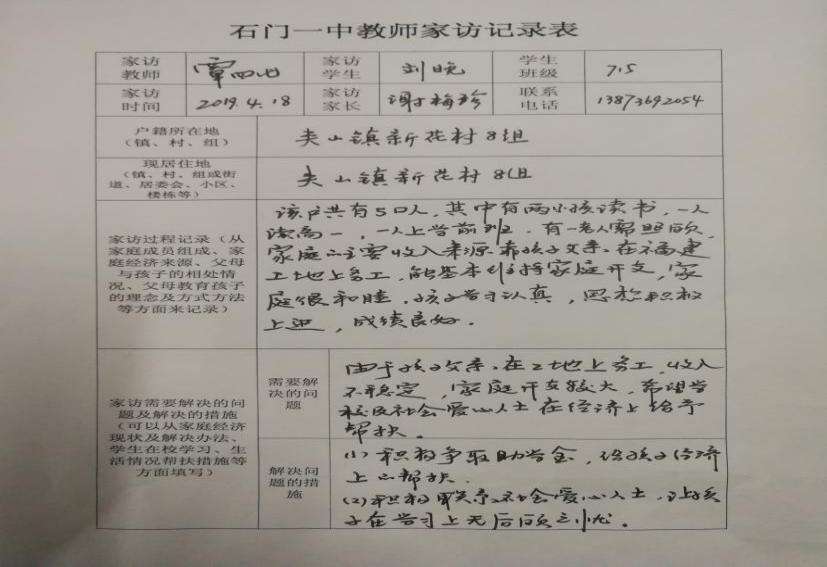 石门一中教师家访记录表
家访教师 覃四化 家访学生 刘晚 学生班级 715
家访时间 2019.4.18 家访家长 谢梅珍 联系电话 13873692054
户籍所在地（镇、村、组） 夹山镇新花村8组
现居住地（镇、村、组或街道、居委会、小区、楼栋等） 夹山镇新花村8组
家访过程记录（从家庭成员组成、家庭经济来源、父母与孩子的相处情况、父母教育孩子的理念及方式方法等方面来记录）
该户共有5口人，其中有两小孩读书，一人
读高一，一人上学前班，有一老人需照顾，
家庭的主要收入来源靠孩子父亲在福建
工地上务工，能基本维持家庭开支，家
庭很和睦，孩子学习认真，思想积极
上进，成绩良好。
家访需要解决的问题及解决的措施（可以从家庭经济现状及解决办法、学生在校学习、生活情况帮扶措施等方面填写）
需要解决的问题
由于孩子父亲在工地上务工，收入
不稳定，家庭开支较大，希望学
校及社会爱心人士在经济上给予
帮扶。
解决问题的措施
(1) 积极争取助学金，给孩子经济
上的帮扶.
(2) 积极联系社会爱心人士，让孩
子在学习上无后顾之忧。